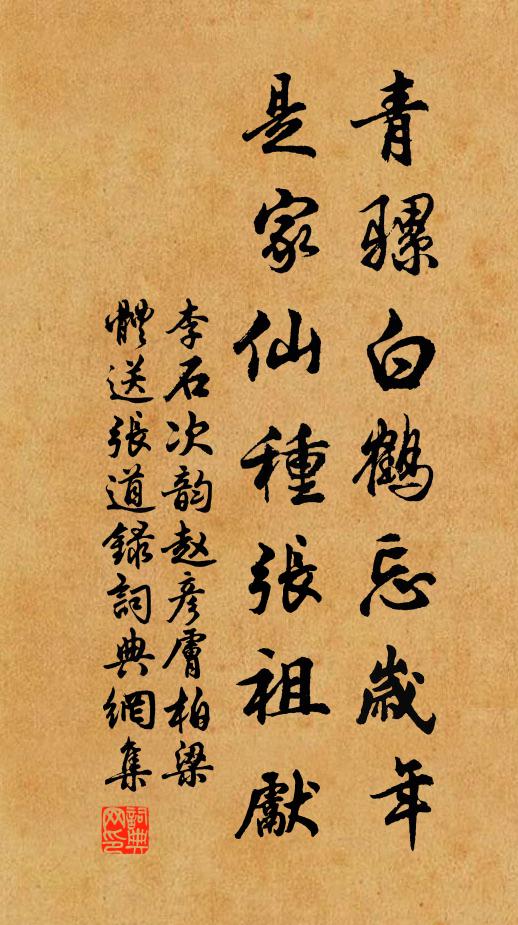 青騾白鶴忘歲年
是家仙種張祖獻
李石次韵赵彥膚柏梁
體送張道録詞典網集
詞典网印